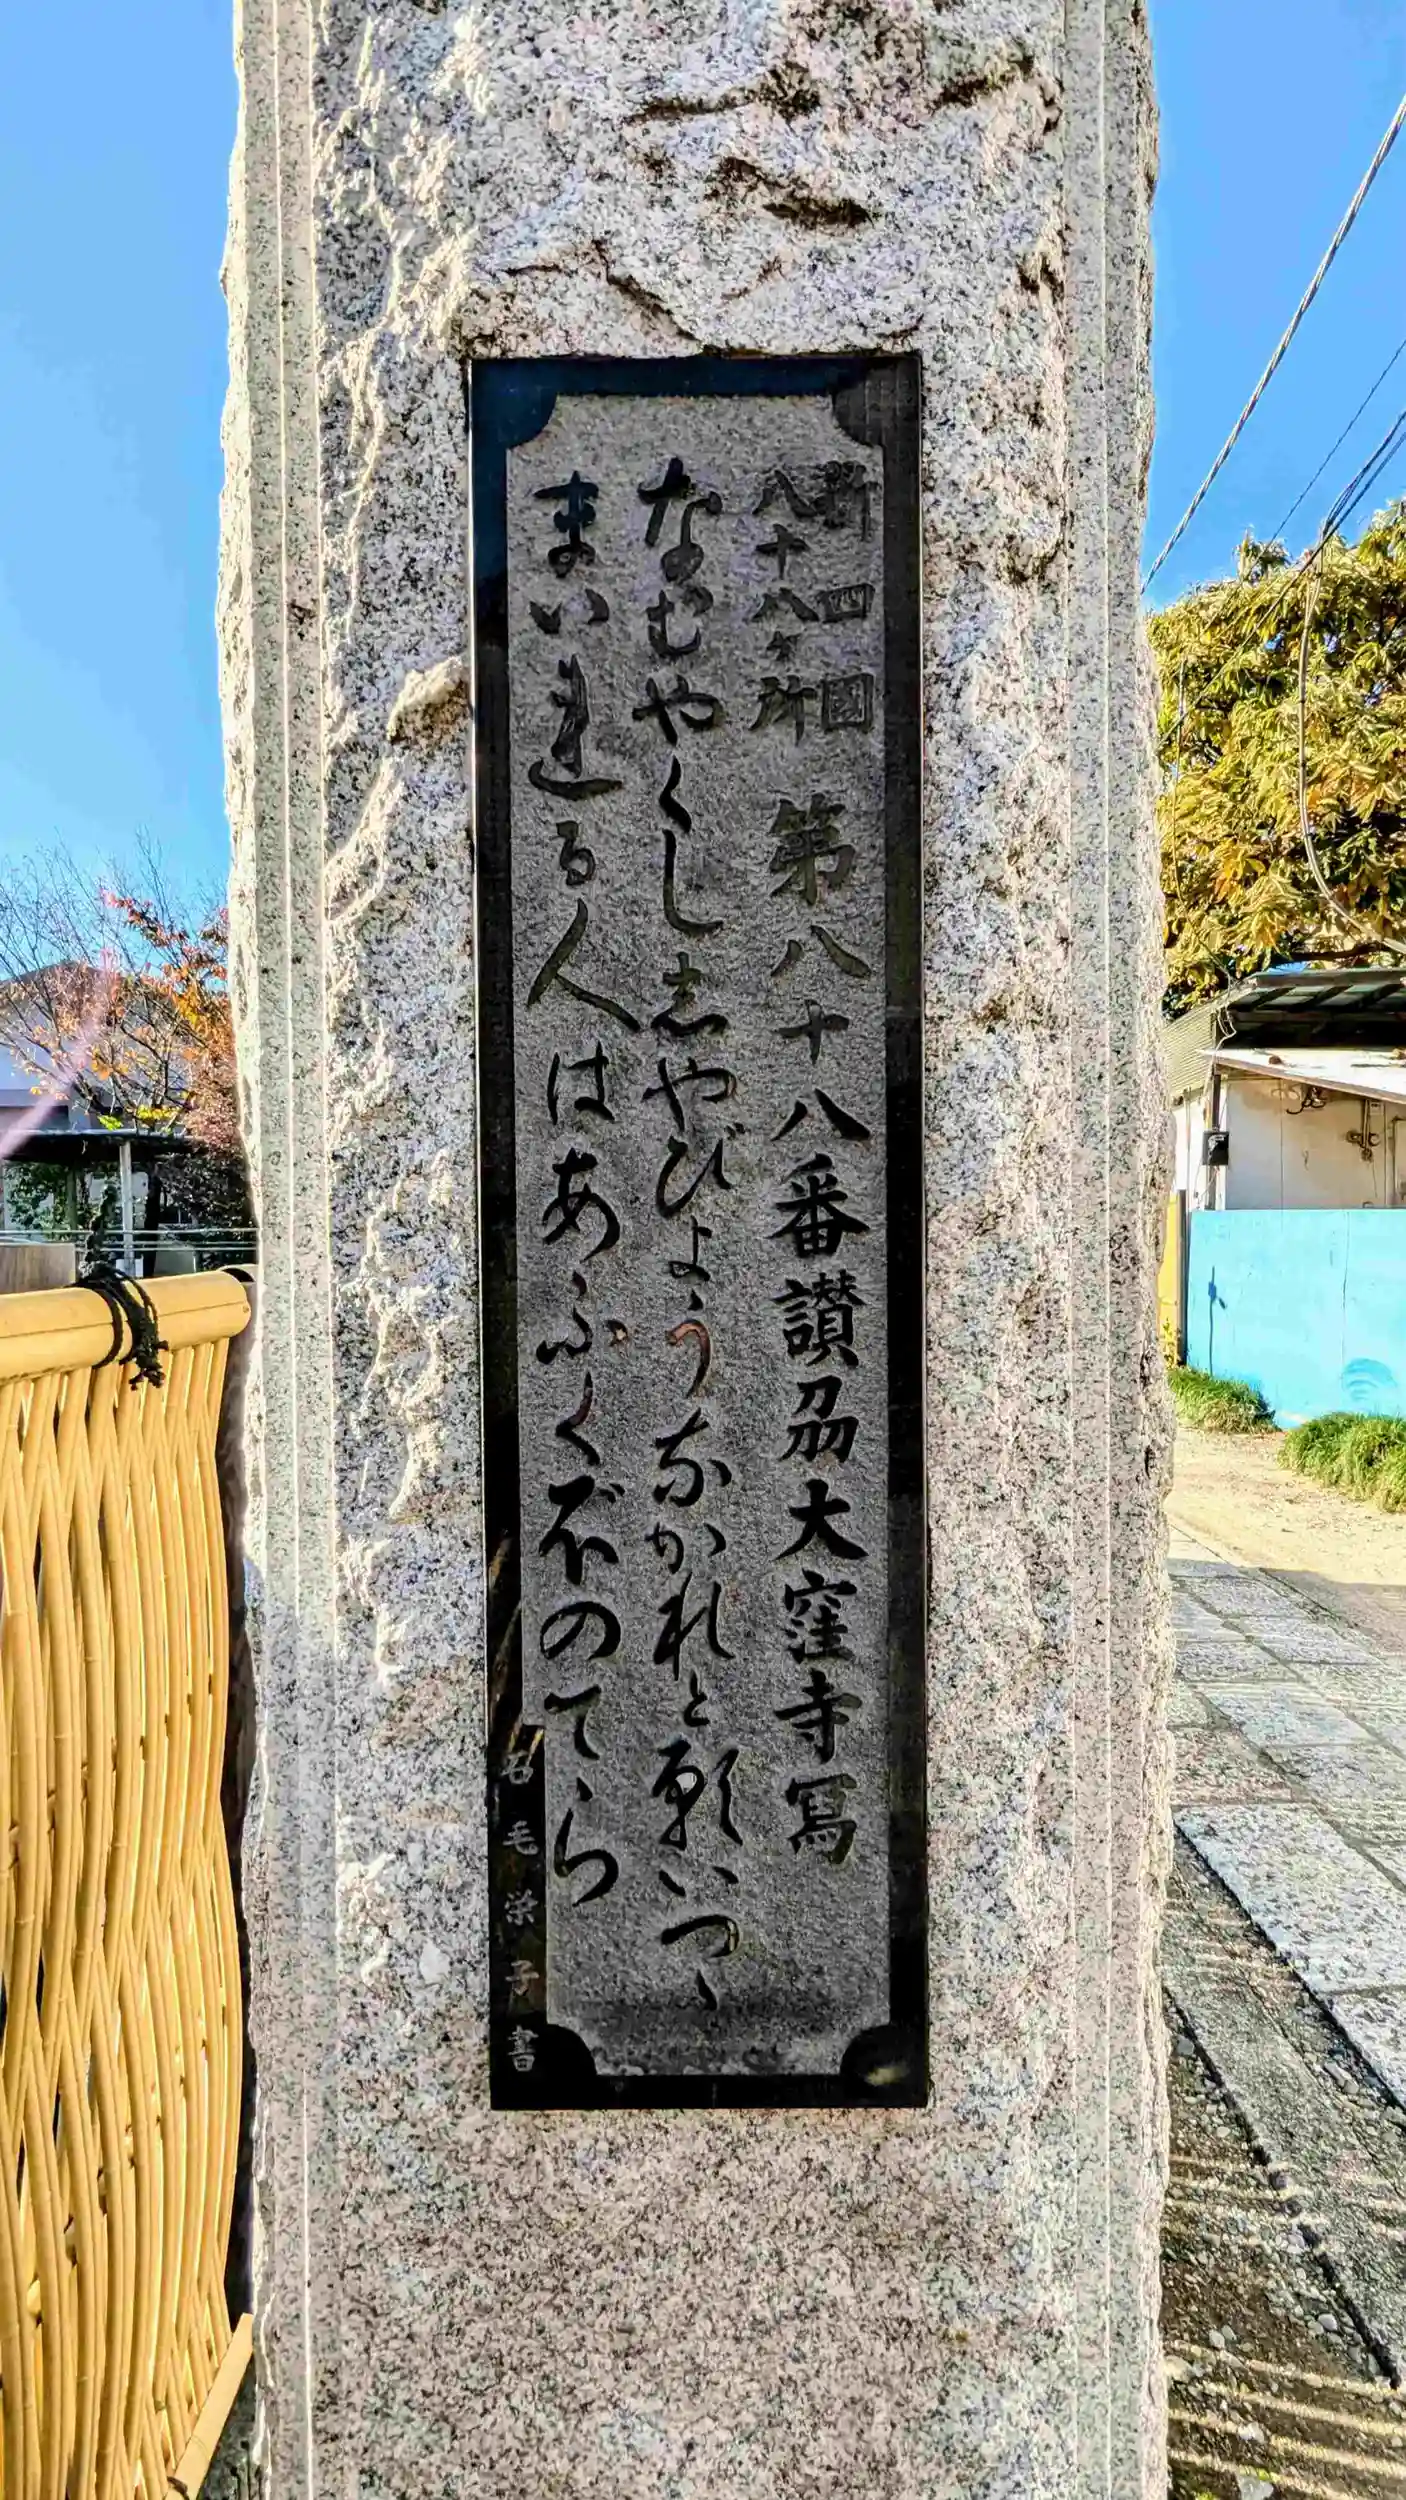 新四國
八十八ヶ所
第八十八番讃刕大窪寺冩
なむやくし志やびょうなかれと願いつゝ
まいれる人はあふくぼのてら
石毛栄子書